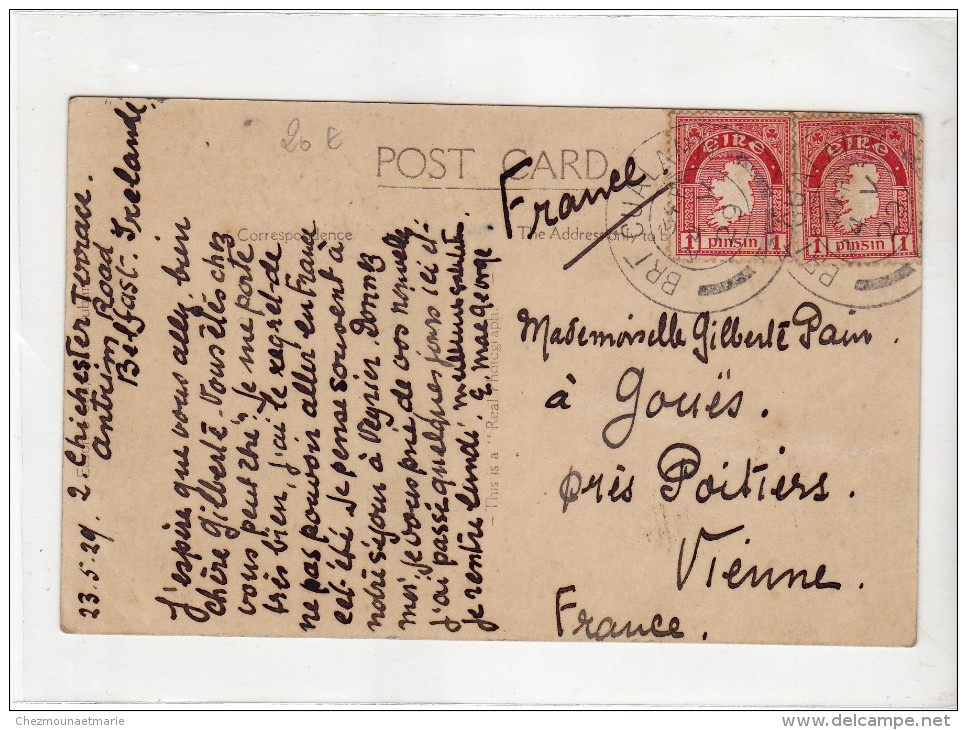 20 €
POST CARD
France.
Correspondence
The Address only to b
ÉIRE
1 PINSIN 1
ÉIRE
1 PINSIN 1
23.5.29. 2 Chichester Terrace.
Antrim Road
Belfast. Irelande.
J'espère que vous allez bien
chère Gilberte. Vous êtes chez
vous peut être! Je me porte
très bien, j'ai le regret de
ne pas pouvoir aller en France
cet été Je pense souvent à
notre séjour à Veyrier. Donnez
moi je vous prie de vos nouvelles
j'ai passé quelques jours ici et
je rentre lundi. meilleurs
This is a "Real Photograph"
Mademoiselle Gilberte Pain.
à Gouës.
près Poitiers.
Vienne.
France.
Chezmounaetmarie
www.delcampe.net